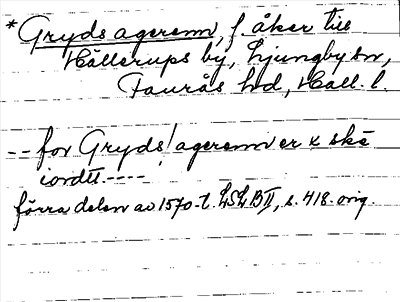 * Gryds agerenn, f. åker till
Hällerups by, Ljungby sn,
Faurås hd, Hall. l.
-- for Gryds! agerenn er x skē
iordtt ----
förra delen av 1570-t. LSLB II, s. 418. orig.